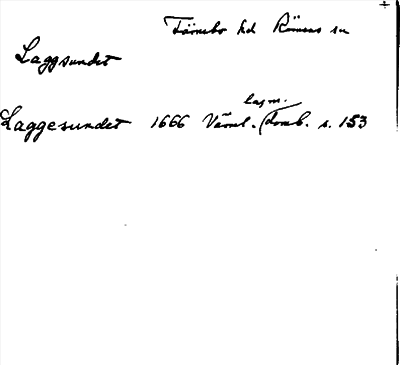 Färnebo hd Rämens sn
Laggsundet
lagm.
Laggesundet 1666 Värml. Domb. s. 153